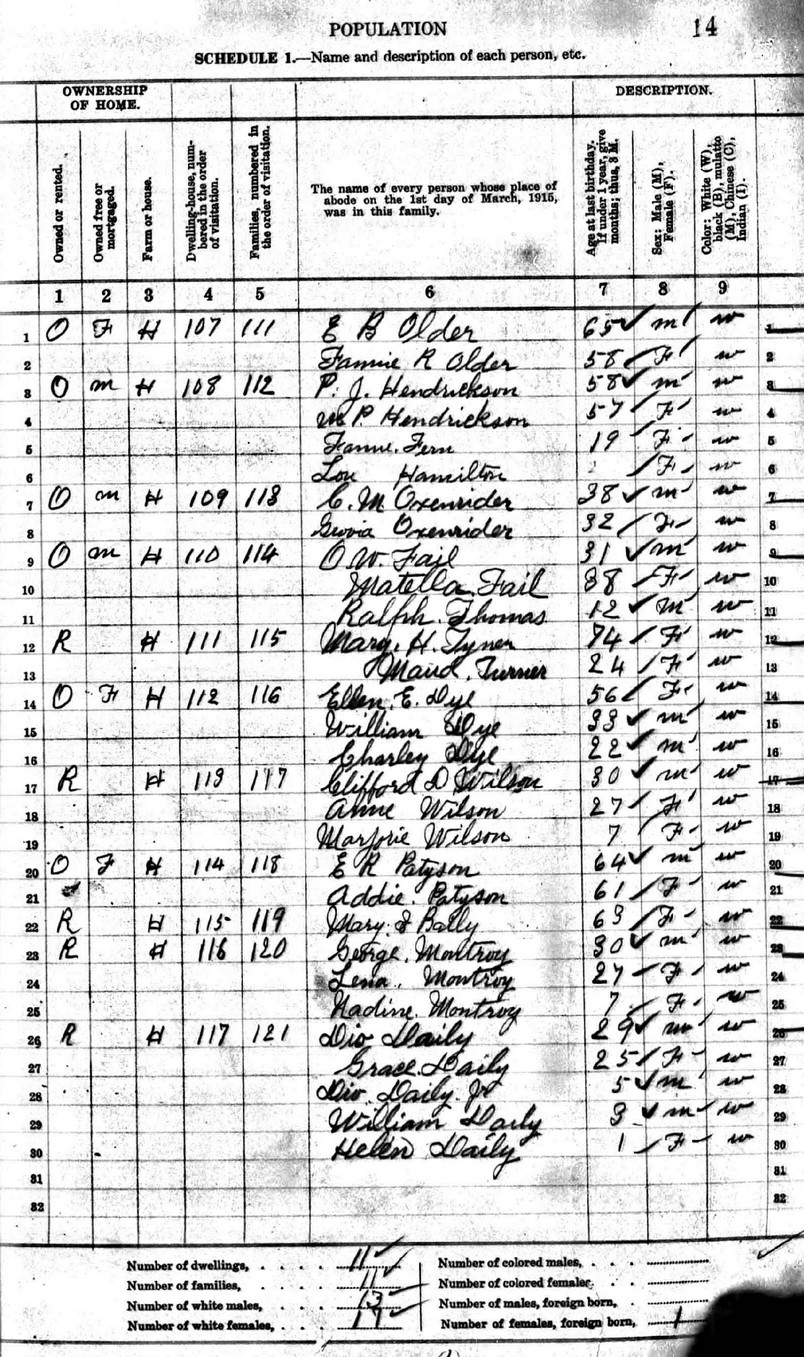 POPULATION 14
SCHEDULE 1.—Name and description of each person, etc.
OWNERSHIP OF HOME. DESCRIPTION.
Owned or rented. Owned free or mortgaged. Farm or house. Dwelling-house, numbered in the order of visitation. Families, numbered in the order of visitation. The name of every person whose place of abode on the 1st day of March, 1915, was in this family. Age at last birthday. If under 1 year, give months; thus, 3 M. Sex: Male (M), Female (F). Color: White (W), black (B), mulatto (M), Chinese (C), Indian (I).
1 2 3 4 5 6 7 8 9
1 O F H 107 111 E B Older 65 m w 1
2 Fannie R Older 58 F w 2
3 O m H 108 112 P. J. Hendrickson 58 m w 3
4 M P Hendrickson 57 F w 4
5 Fanne. Fern 19 F w 5
6 Lou Hamilton F w 6
7 O m H 109 113 C. M Oxenrider 38 m w 7
8 Oxenrider 32 F w 8
9 O m H 110 114 O W. Fail 31 m w 9
10 Matella Fail 38 F w 10
11 Ralph. Thomas 12 m w 11
12 R H 111 115 Mary. H. Tyner 74 F w 12
13 Maud. Turner 24 F w 13
14 O F H 112 116 Ellen. E. Dye 56 F w 14
15 William Dye 33 m w 15
16 Charley Dye 22 m w 16
17 R H 113 117 Clifford D Wilson 30 m w 17
18 Anne Wilson 27 F w 18
19 Marjorie Wilson 7 F w 19
20 O F H 114 118 E R Patyson 64 m w 20
21 Addie. Patyson 61 F w 21
22 R H 115 119 Mary. Bally 63 F w 22
23 R H 116 120 George. Montroy 30 m w 23
24 Lena. Montroy 27 F w 24
25 Nadine. Montroy 7 F w 25
26 R H 117 121 Dio Daily 29 m w 26
27 Grace Daily 25 F w 27
28 Dio. Daily. Jr 5 m w 28
29 William Daily 3 m w 29
30 Helen Daily 1 F w 30
31 31
32 32
Number of dwellings, . . . . 11 Number of colored males, . . .
Number of families, . . . . 11 Number of colored females. . .
Number of white males, . . . 13 Number of males, foreign born, .
Number of white females, . . . 17 Number of females, foreign born, 1